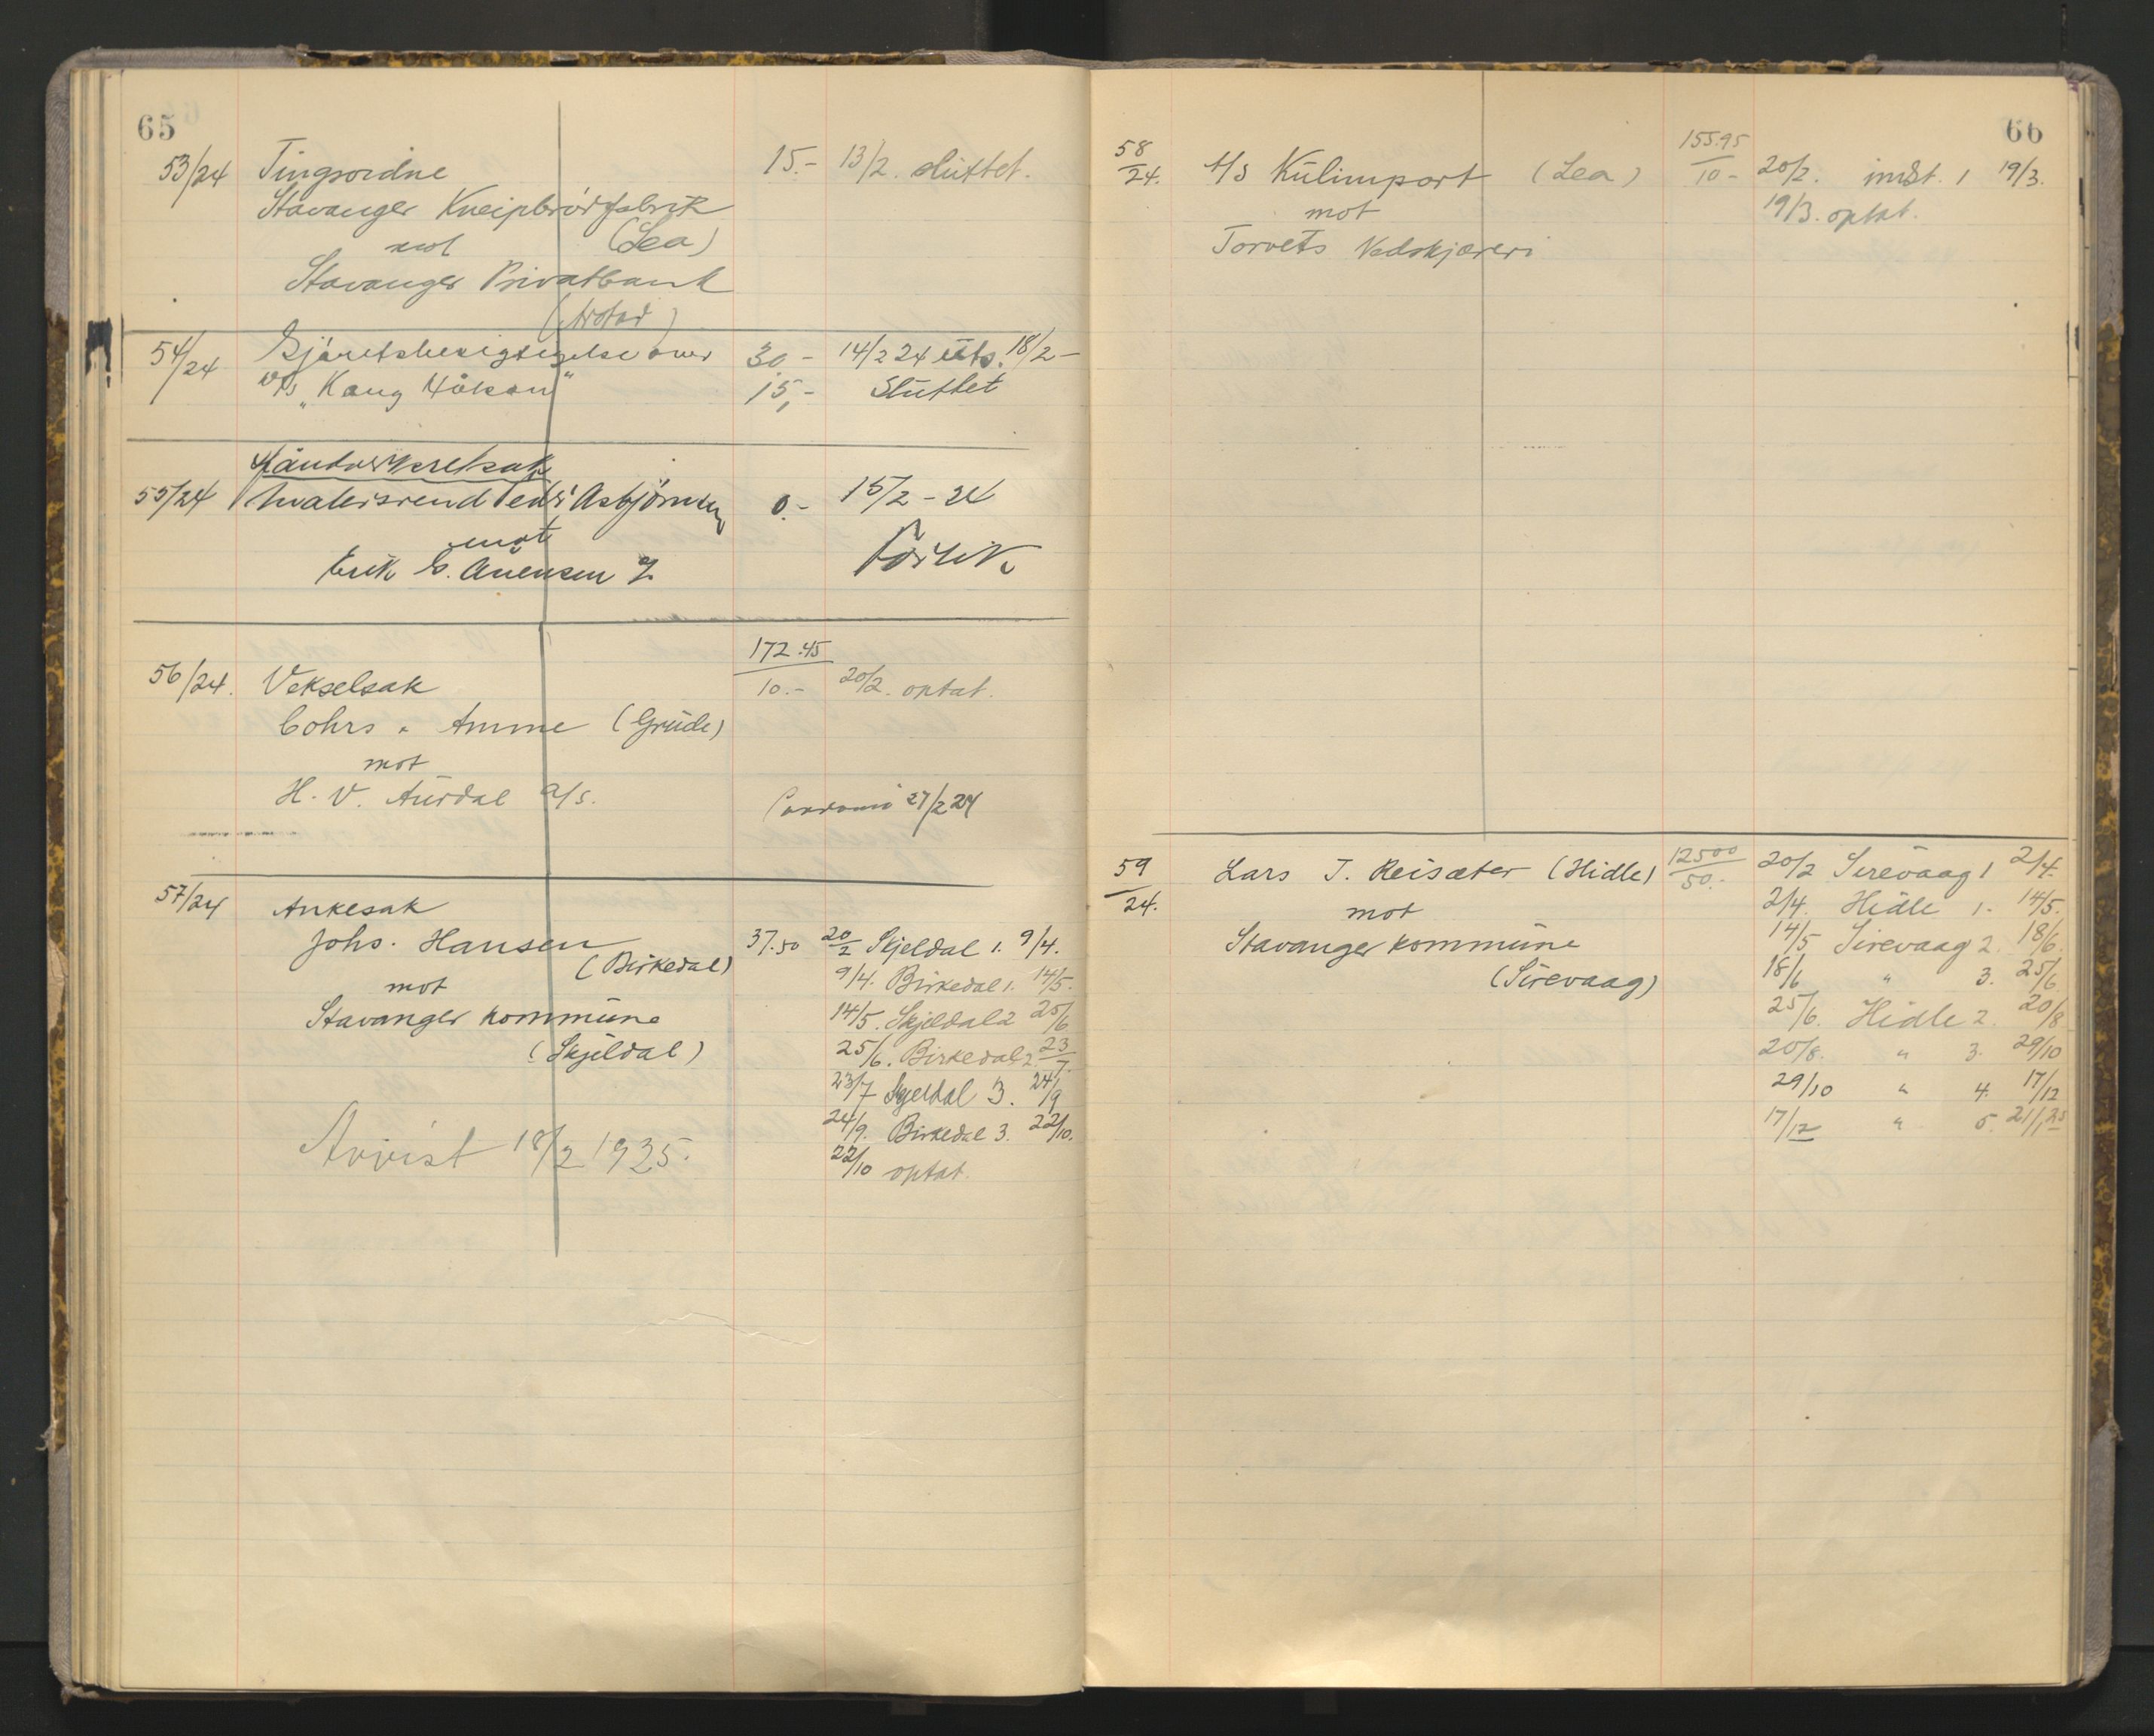 65
53/24 Tingsvidne 15.- 13/2. sluttet.
Stavanger Kneipbrødfabrik
mot (Lea)
Stavanger Privatbank
54/24 Sjøretsbesigtigelse over 30.- 14/2 24 uts. 18/2 -
"Kong Håkon" 15,- Sluttet
Håndverksretsak
55/24 Asbjørnsen 0.- 15/2 - 24
mot
Erik forlik
172.45
56/24. Vekselsak 10.- 20/2. optat.
Cohrs & Amme (Grude)
mot
H. V. Aurdal A/s. 27/2 24
57/24 Ankesak
Johs. Hansen 37.50 20/2 Skjeldal 1. 9/4.
(Birkedal) 9/4. Birkedal 1. 14/5.
mot
Stavanger kommune 14/5. Skjeldal 2 25/6
(Skjeldal) 25/6. Birkedal 2 23/7.
23/7 Skjeldal 3. 24/9
24/9. Birkedal 3. 22/10.
Avvist 18/2 1925. 22/10 optat.
66
155.95
58/24. A/S Kulimport (Lea) 10- 20/2. imøt. 1 19/3.
mot 19/3. optat.
Torvets Vedskjæreri
59/24. Lars T. Reisæter (Hidle) 12500/50.- 20/2 Sirevaag 1 2/4.
mot 2/4. Hidle 1. 14/5.
Stavanger kommune 14/5 Sirevaag 2. 18/6.
(Sirevaag) 18/6 " 3. 25/6
25/6. Hidle 2. 20/8
20/8. " 3. 29/10
29/10 " 4. 17/12
17/12 " 5. 21/1 25